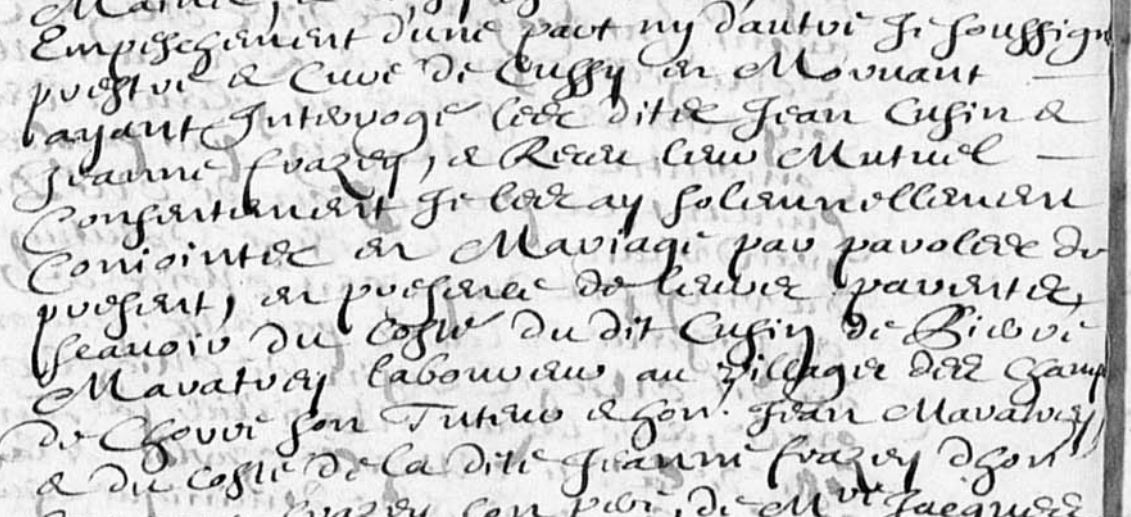 Empeschement d'une part ny d'autre Je soussigné
prestre & Curé de Cussy en Morvant
ayant Interrogé lesd dites Jean Cusin &
Jeanne Frazey, & Receu leur Mutuel
Consentement Je les ay solennellement
Conjointes en Mariage par parolles de
present, en presence de leurs parentes,
sçavoir du costé du dit Cusin de
Mavatrey laboureur au Village des Champ
de Chovve son Tuteur & hon. Jean Mavatrey
& du costé de la dite Jeanne Frazey d'hon
Frazey son pere, de Mre Jacques